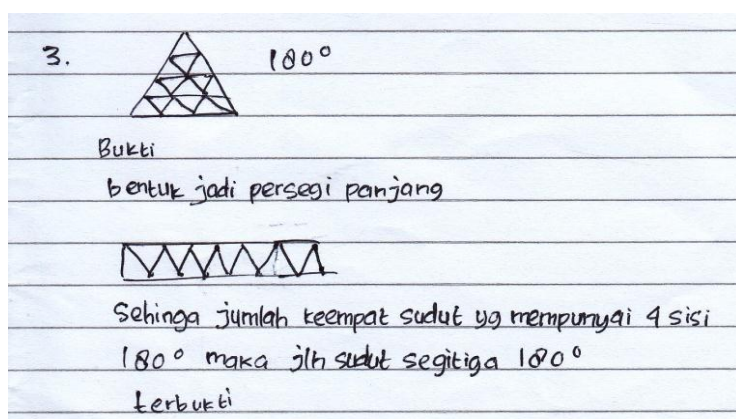 3. 180°
Bukti
bentuk jadi persegi panjang
Sehinga jumlah keempat sudut yg mempunyai 4 sisi
180° maka jlh sudut segitiga 180°
terbukti